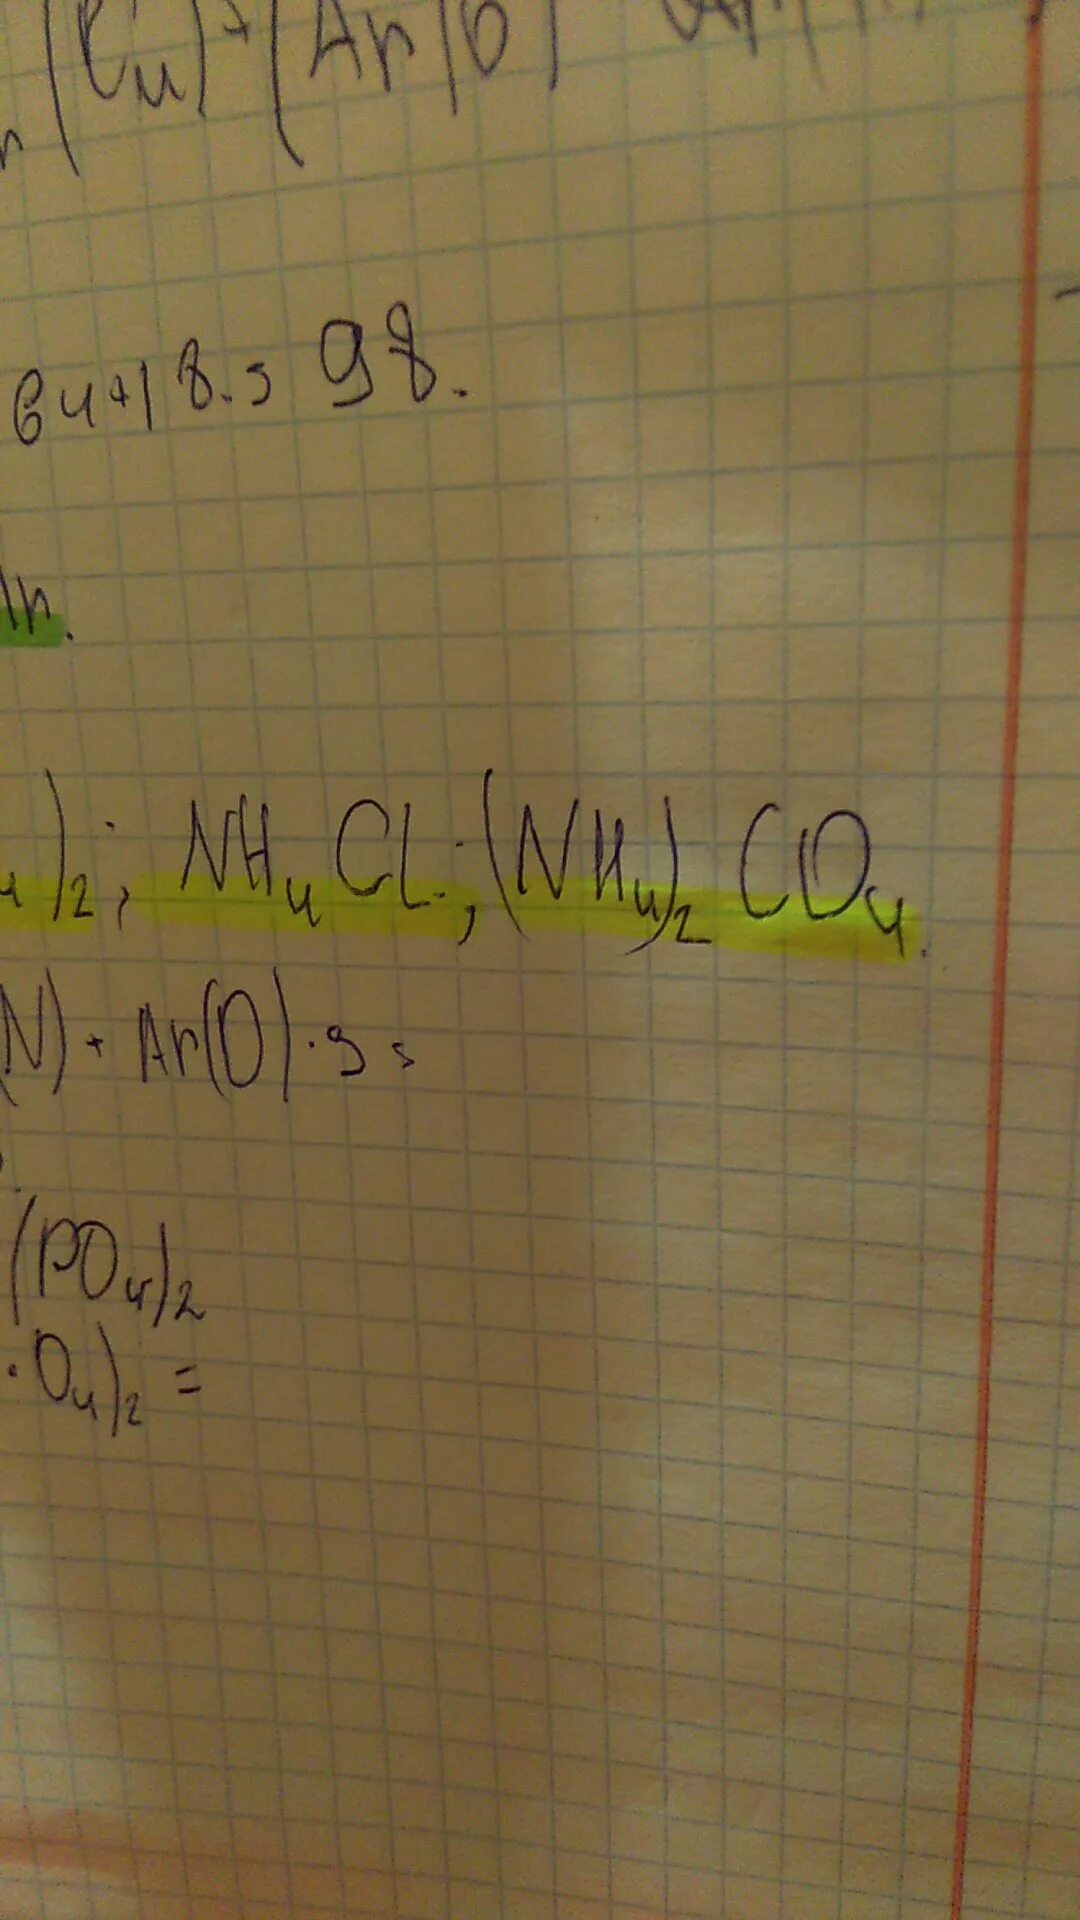 (Cu)+(Ar(O)
64+18.=98.
Mr.
4)2; NH4Cl; (NH4)2CO4.
(N)+Ar(O)·3=
(PO4)2
·O4)2=